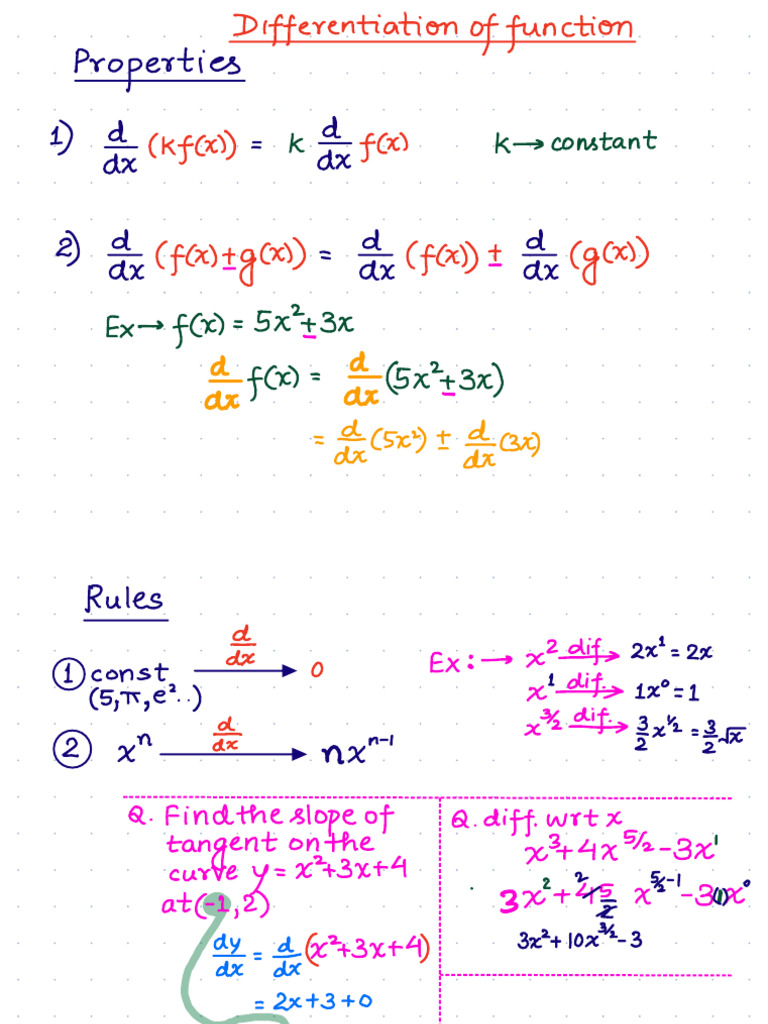 Differentiation of function
Properties
1) d/dx (kf(x)) = k d/dx f(x) k→constant
2) d/dx (f(x)±g(x)) = d/dx (f(x)) ± d/dx (g(x))
Ex→ f(x) = 5x²+3x
d/dx f(x) = d/dx (5x²+3x)
= d/dx (5x²) ± d/dx (3x)
Rules
① const d/dx → 0
(5,π,e²..)
② xⁿ d/dx → nxⁿ⁻¹
Ex:→ x² dif → 2x¹ = 2x
x¹ dif. → 1x⁰ = 1
x^3/2 dif. → 3/2 x^1/2 = 3/2 √x
Q. Find the slope of
tangent on the
curve y = x²+3x+4
at (-1,2)
dy/dx = d/dx (x²+3x+4)
= 2x+3+0
Q. diff. wrt x
x³+4x^5/2-3x¹
3x²+4 5/2 x^5/2-1 -3(1)x⁰
3x²+10x^3/2-3